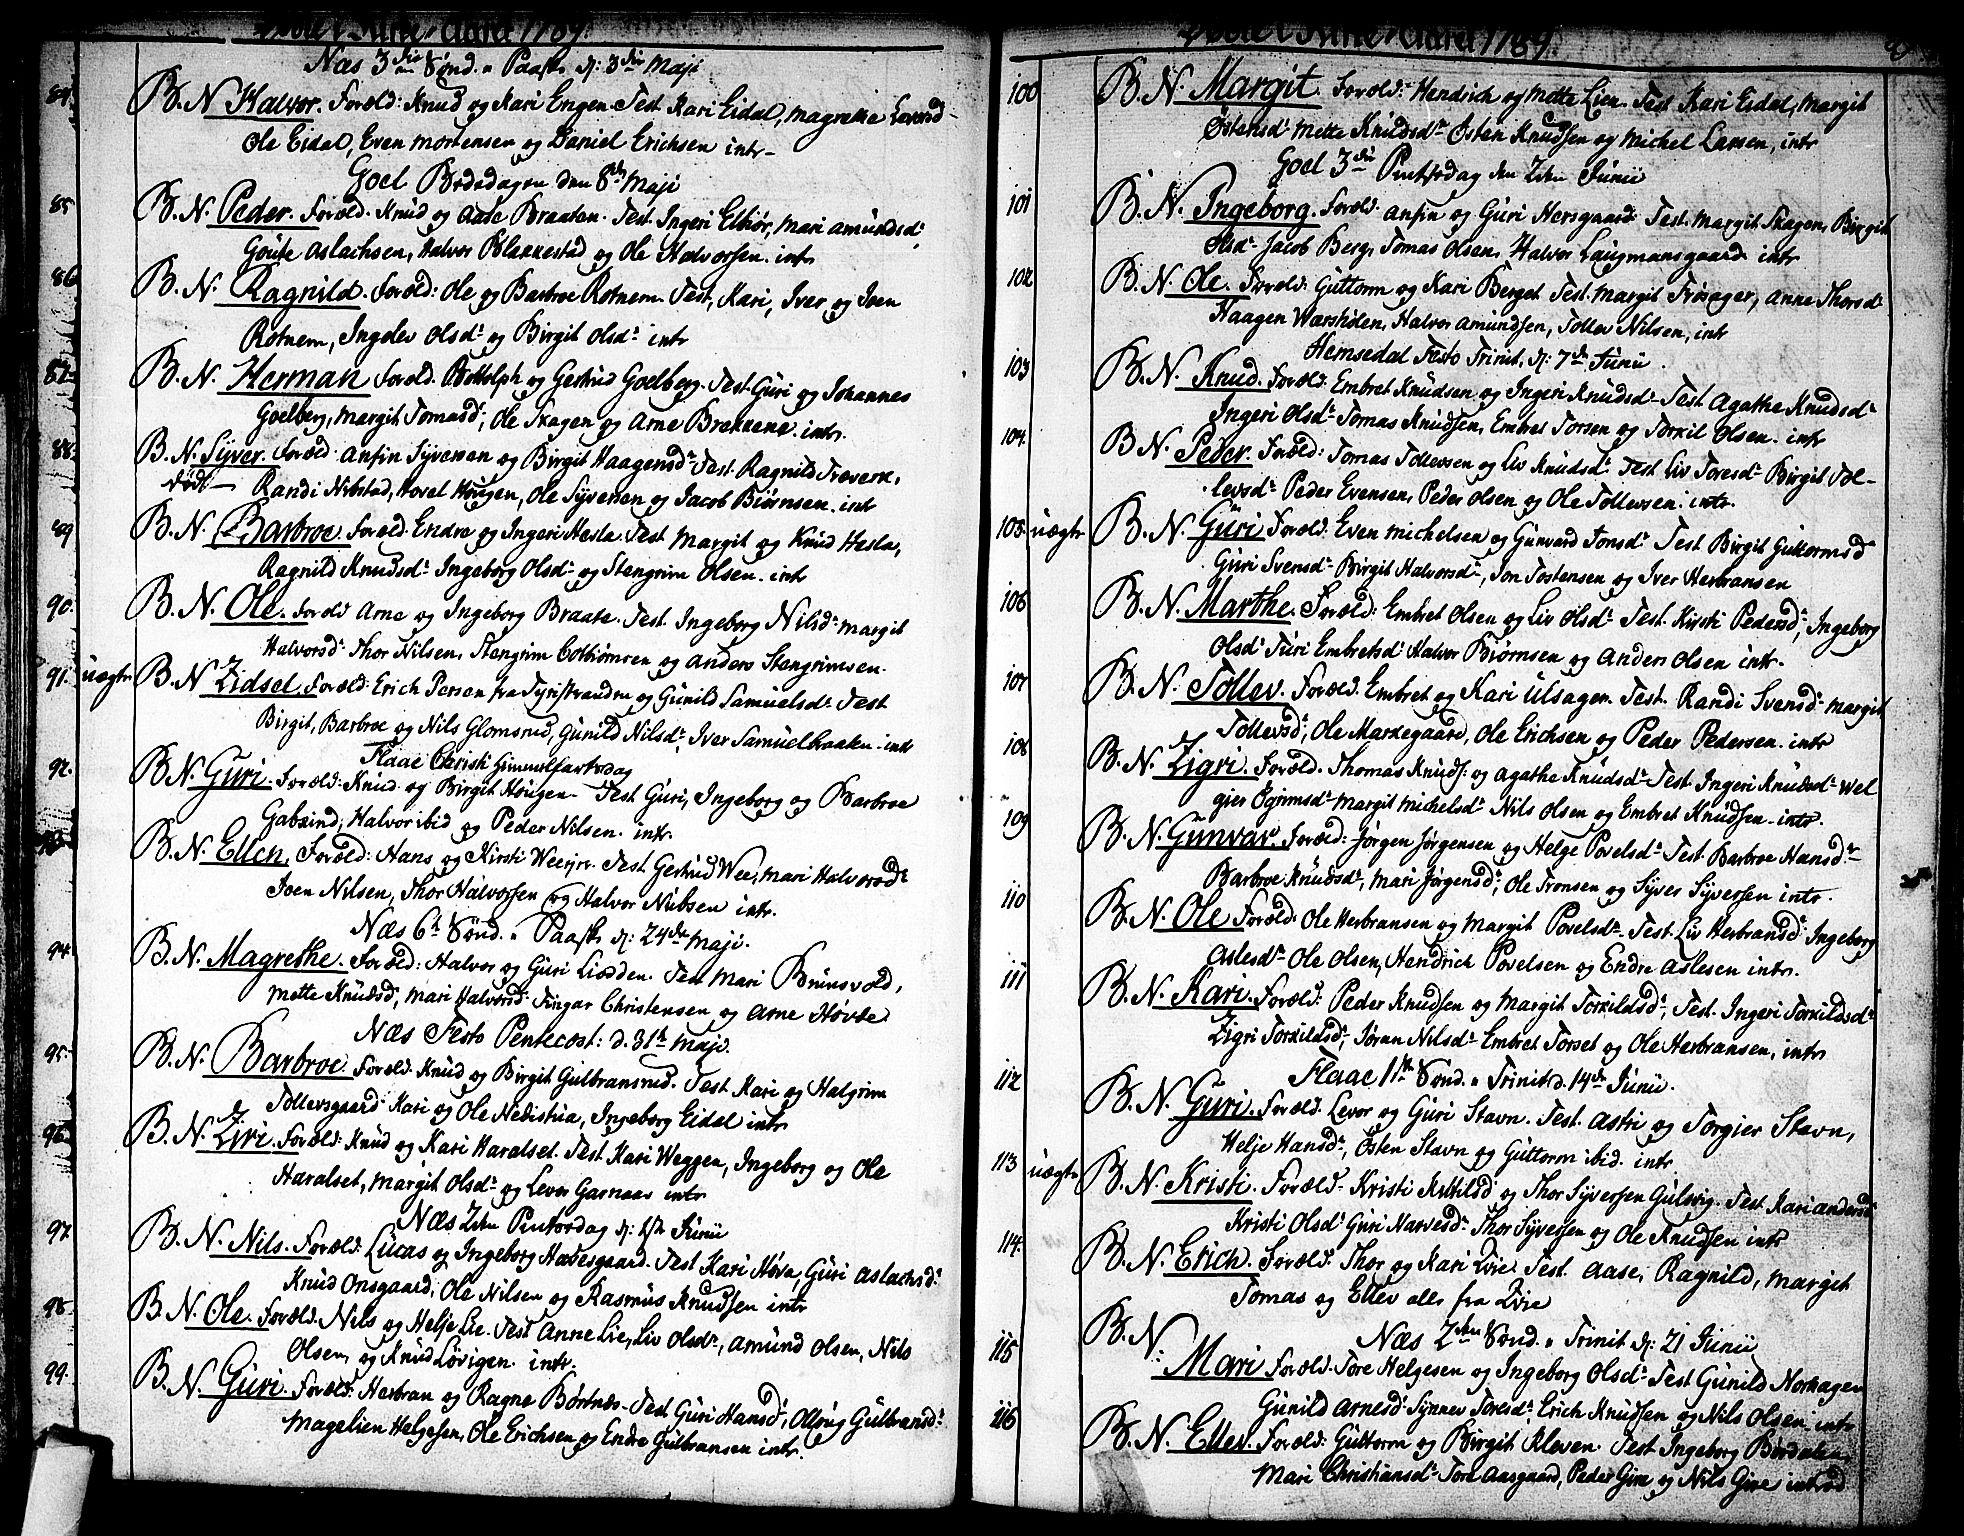 Aaret 1789.
Næs 3die Sønd. a Paask. d: 3die Maji
84. B. N. Halvor. Foræld: Knud og Kari Engen. Test. Kari Eidal, Magrethe
Ole Eidal, Even Mortensen og Daniel Erichsen intr
Goel Bededagen den 8de Maji
85. B. N. Peder. Foræld. Knud og Aase Braaten. Test. Ingeri Mari Amundsdr
Goute Aslachsen, Halvor Blakkestad og Ole Halvorsen. intr
86. B. N. Ragnild. Foræld: Ole og Barbroe Rotnem. Test, Kari, Iver og Iven
Rotnem, Ingelev Olsdr og Birgit Olsdr intr
87. B. N. Herman Foræld. Bottolph og Gertrud Goelberg. Test. Guri og Johannes
Goelberg, Margit Tomasd; Ole Skagen og Arne Brekkene. intr.
88. B. N. Syver. Foræld. Anfin Syversen og Birgit Haagensdr Test. Ragnild
død Randi Nibstad, Hovel Hougen, Ole Syversen og Jacob Biørnsen. intr
89. B. N. Barbroe. Foræld. Endre og Ingeri Hesla. Test Margit og Knud Hesla,
Ragnild Knudsdr Ingeborg Olsdr og Stengrim Olsen. intr
90. B. N. Ole. Foræld Arne og Ingeborg Braate. Test. Ingeborg Nilsdr Margit
Halvorsdr Thor Nilsen, Stengrim og Anders Stengrimsen.
91. uægte B. N. Zidsel Foræld: Erich Persen fra Tyristranden og Gunild Samuelsdr Test
Birgit, Barbroe og Nils Glomsrud, Gunild Nilsdr, Iver Samuelbraaten. intr
Flaae Christi Himmelfartsdag
92. B. N. Guri. Foræld: Knud og Birgit Hougen. Test Guri, Ingeborg og Barbroe
Gabeind, Halvor ibid og Peder Nilsen. intr.
93. B. N. Ellen. Foræld: Hans og Kirsti Test Gertrud Wee, Mari Halvorsdr
Iven Nilsen, Thor Halvorsen og Halvor Nubsen intr.
Næs 6te Sønd. a Paask. d: 24de Maji.
94. B. N. Magrethe. Foræld: Halvor og Guri Liodden. Test Mari Brunsvold,
Mette Knudsd, Mari Halvorsd Fingar Christensen og Arne Hovde.
Næs Festo Pentecost: d. 31te Maji.
95. B. N. Barbroe. Foræld. Knud og Birgit Gulbransrud. Test Kari og Halgrim
Tollevsgaard Kari og Ole Nedistua, Ingeborg Eidal intr
96. B. N. Ziri. Foræld: Knud og Kari Haralset. Test Kari Weggen, Ingeborg og Ole
Haralset, Margit Olsdr og Levor Garnaas intr
Næs 2den Pintsedag d: 1ste Junii
97. B. N. Nils. Foræld: Lucas og Ingeborg Hævesgaard. Test Kari Høva, Guri Aslachsdr
Knud Onsgaard, Ole Nilsen og Rasmus Knudsen intr
98. B. N. Ole. Foræld. Nils og Helje Lie. Test Anne Lie, Liv Olsdr, Amund Olsen, Nils
Olsen, og Knud Løvigen. intr.
99. B. N. Guri. Foræld: Herbran og Ragne Børtnes. Test Guri Hansd, Olloug Gulbransdr
Magelien Helgesen, Ole Erichsen og Endre Gulbransen intr.
Aaret 1789.
100 B. N. Margit. Foræld: Hendrich og Mette Lien. Test Kari Eidal, Margit
Østensdr Mette Knudsdr Østen Knudsen og Michel Larsen, intr
Goel 3die Pintsedag den 2den Junii
101 B. N. Ingeborg. Foræld. Anfin og Guri Hersgaard. Test. Margit Skagen, Birgit
Olsdr Jacob Berg, Tomas Olsen, Halvor Laugmansgaard. intr
102 B. N. Ole. Foræld: Guttorm og Kari Berget. Test. Margit Frøsager, Anne Thorsdr
Haagen Halvor Amundsen, Tollev Nilsen, intr
Hemsedal Festo Trinit. d: 7de Junii.
103 B. N. Knud. Foræld: Embret Knudsen og Ingeri Knudsdr Test Agathe Knudsdr
Ingeri Olsdr Tomas Knudsen, Embret Torsen og Torkil Olsen. intr
104. B. N. Peder. Foræld: Tomas Tollevsen og Liv Knudsd. Test Liv Toresdr Birgit Tol-
levsdr Peder Evensen, Peder Olsen og Ole Tollevsen. intr.
105. uægte B. N. Guri Foræld: Even Michelsen og Gunvard Jonsdr Test Birgit Guttormsd
Guri Svensdr Birgit Halvorsdr, Jon Tostensen og Iver Herbransen
106 B. N. Marthe. Foræld: Embret Olsen og Liv Olsdr Test. Kirsti Pedersdr, Ingeborg
Olsd Turi Embretsd Halvor Biørnsen og Anders Olsen intr.
107 B. N. Tollev. Foræld. Embret og Kari Ulsagen. Test. Randi Svensdr Margit
Tollevsd, Ole Markegaard, Ole Erichsen og Peder Pedersen. intr
108 B. N. Zigri. Foræld. Thomas Knuds: og Agathe Knudsdr Test. Ingeri Knudsdr Wel
gier Ogrimsdr Margit Michelsdr Nils Olsen og Embret Knudsen. intr.
109 B. N. Gunvar. Foræld: Jørgen Jørgensen og Helge Povelsdr Test. Barbroe Hansdr
Barbroe Knudsdr, Mari Jørgensd, Ole Tronsen og Syver Syversen intr.
110 B. N. Ole Foræld: Ole Herbransen og Margit Povelsdr Test. Liv Herbransd Ingeborg
Aslesdr Ole Olsen, Hendrich Povelsen og Endre Aslesen intr.
111 B. N. Kari. Foræld: Peder Knudsen og Margit Torkildsd, Test. Ingeri Torkildsdr
Zigri Torkildsd, Jøran Nilsdr Embret Torset og Ole Herbransen, intr
Flaae 1ste Sønd. a Trinit d. 14de Junii.
112 B. N. Guri. Foræld. Levor og Guri Stavn. Test. Astri og Torgier Stavn,
Helje Hansdr, Østen Stavn og Guttorm ibid. intr
113 uægte B. N. Kristi. Foræld. Kristi Kittilsd og Thor Syversen Gulsvig. Test. Kari Andersd
Kristi Olsdr Guri Narvesdr Thor Syversen og Ole Knudsen intr
114. B. N. Erich. Foræld: Thor og Kari Test. Aase, Ragnild, Margit
Tomas og Ellev alle fra
Næs 2den Sønd. a Trinit d: 21 Junii
115 B. N. Mari Foræld. Tore Helgesen og Ingeborg Olsdr Test Gunild Norhagen
Gunild Arnesd Synnev Toresdr, Erich Knudsen og Nils Olsen. intr
116 B. N. Ellev. Foræld: Guttorm og Birgit Kleven. Test Ingeborg
Mari Christiansdr Tore Aasgaard, Peder Gire og Nils Gire introd